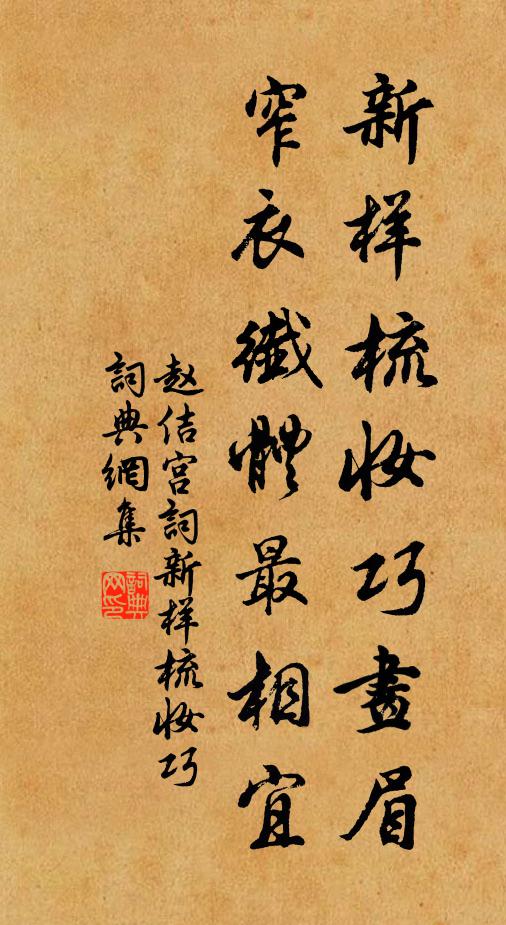 新样梳妆巧畫眉
窄衣纖體最相宜
赵佶宫詞新样梳妆巧
詞典網集
詞典网印